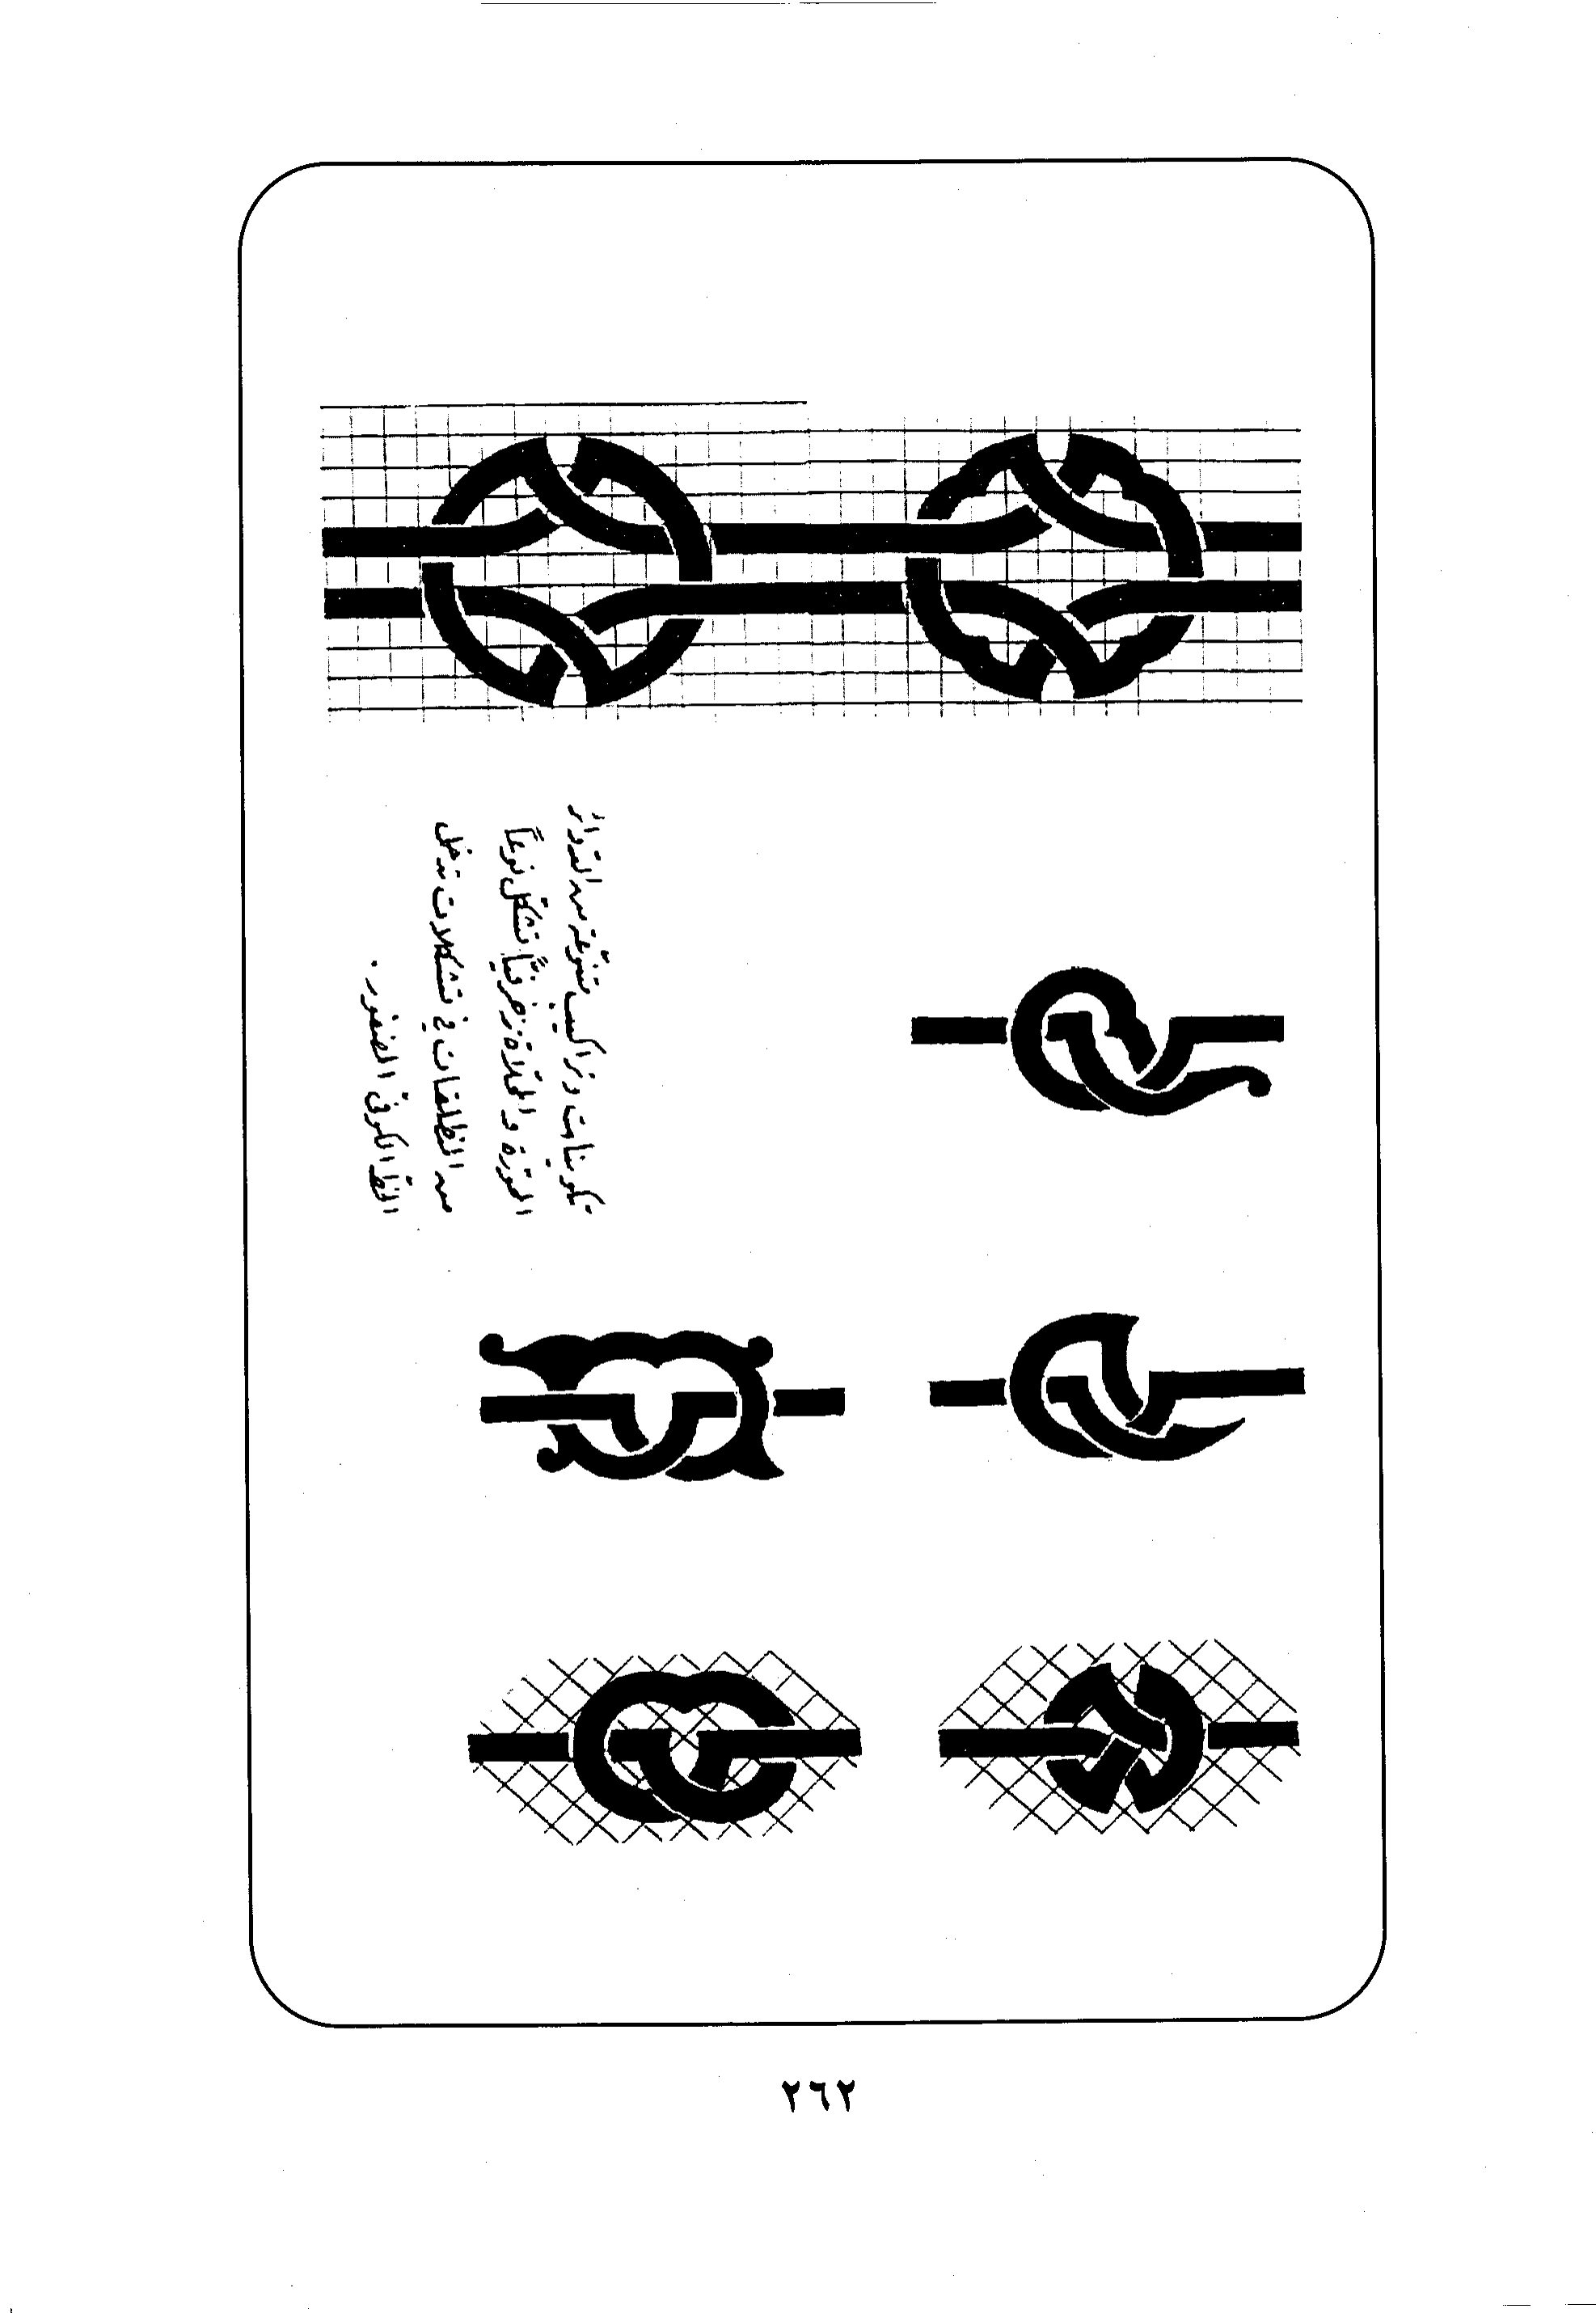 تكوينات وتراكيب متنوّعة من الدوائر
المحوّرة والمحلّاة زخرفيّاً تشكّل نوعاً
من المنطلقات في تشكيلات تدخل
الخطّ الكوفيّ المضفور .
٢٦٢